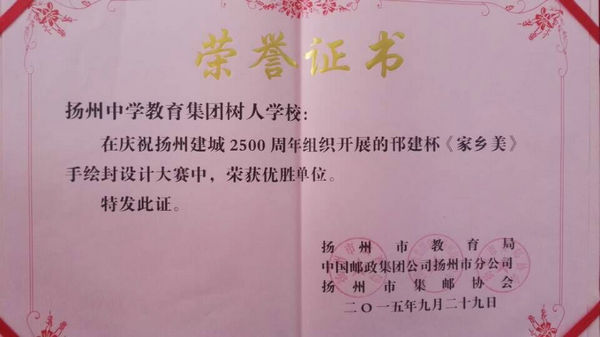 荣誉证书
扬州中学教育集团树人学校：
在庆祝扬州建城2500周年组织开展的邗建杯《家乡美》
手绘封设计大赛中，荣获优胜单位。
特发此证。
扬州市教育局
中国邮政集团公司扬州市分公司
扬州市集邮协会
二〇一五年九月二十九日